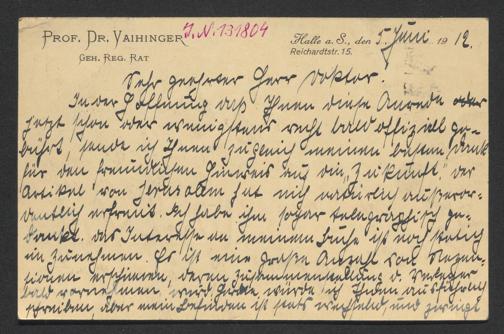 PROF. DR. VAIHINGER
GEH. REG. RAT
I.N. 131804
Halle a. S., den 5. Juni 1912.
Reichardtstr. 15.
Sehr geehrter Herr Doktor.
In der Hoffnung daß Ihnen diese Anrede
jetzt schon oder wenigstens recht bald offiziell ge-
bührt, sende ich Ihnen zugleich meinen besten Dank
für den freundlichen Hinweis auf die „Zukunft“, der
Artikel von Jerusalem hat mich natürlich außeror-
dentlich erfreut. Ich habe ihm sogar telegraphisch ge-
dankt. Das Interesse an meinem Buche ist noch stetig
im Zunehmen. Es ist eine große Anzahl von Rezen-
sionen erschienen, deren Zusammenstellung d. Verleger
bald vornehmen wird. Gerne würde ich Ihnen ausführlich
schreiben, aber mein Befinden ist stets wechselnd, und zwingt